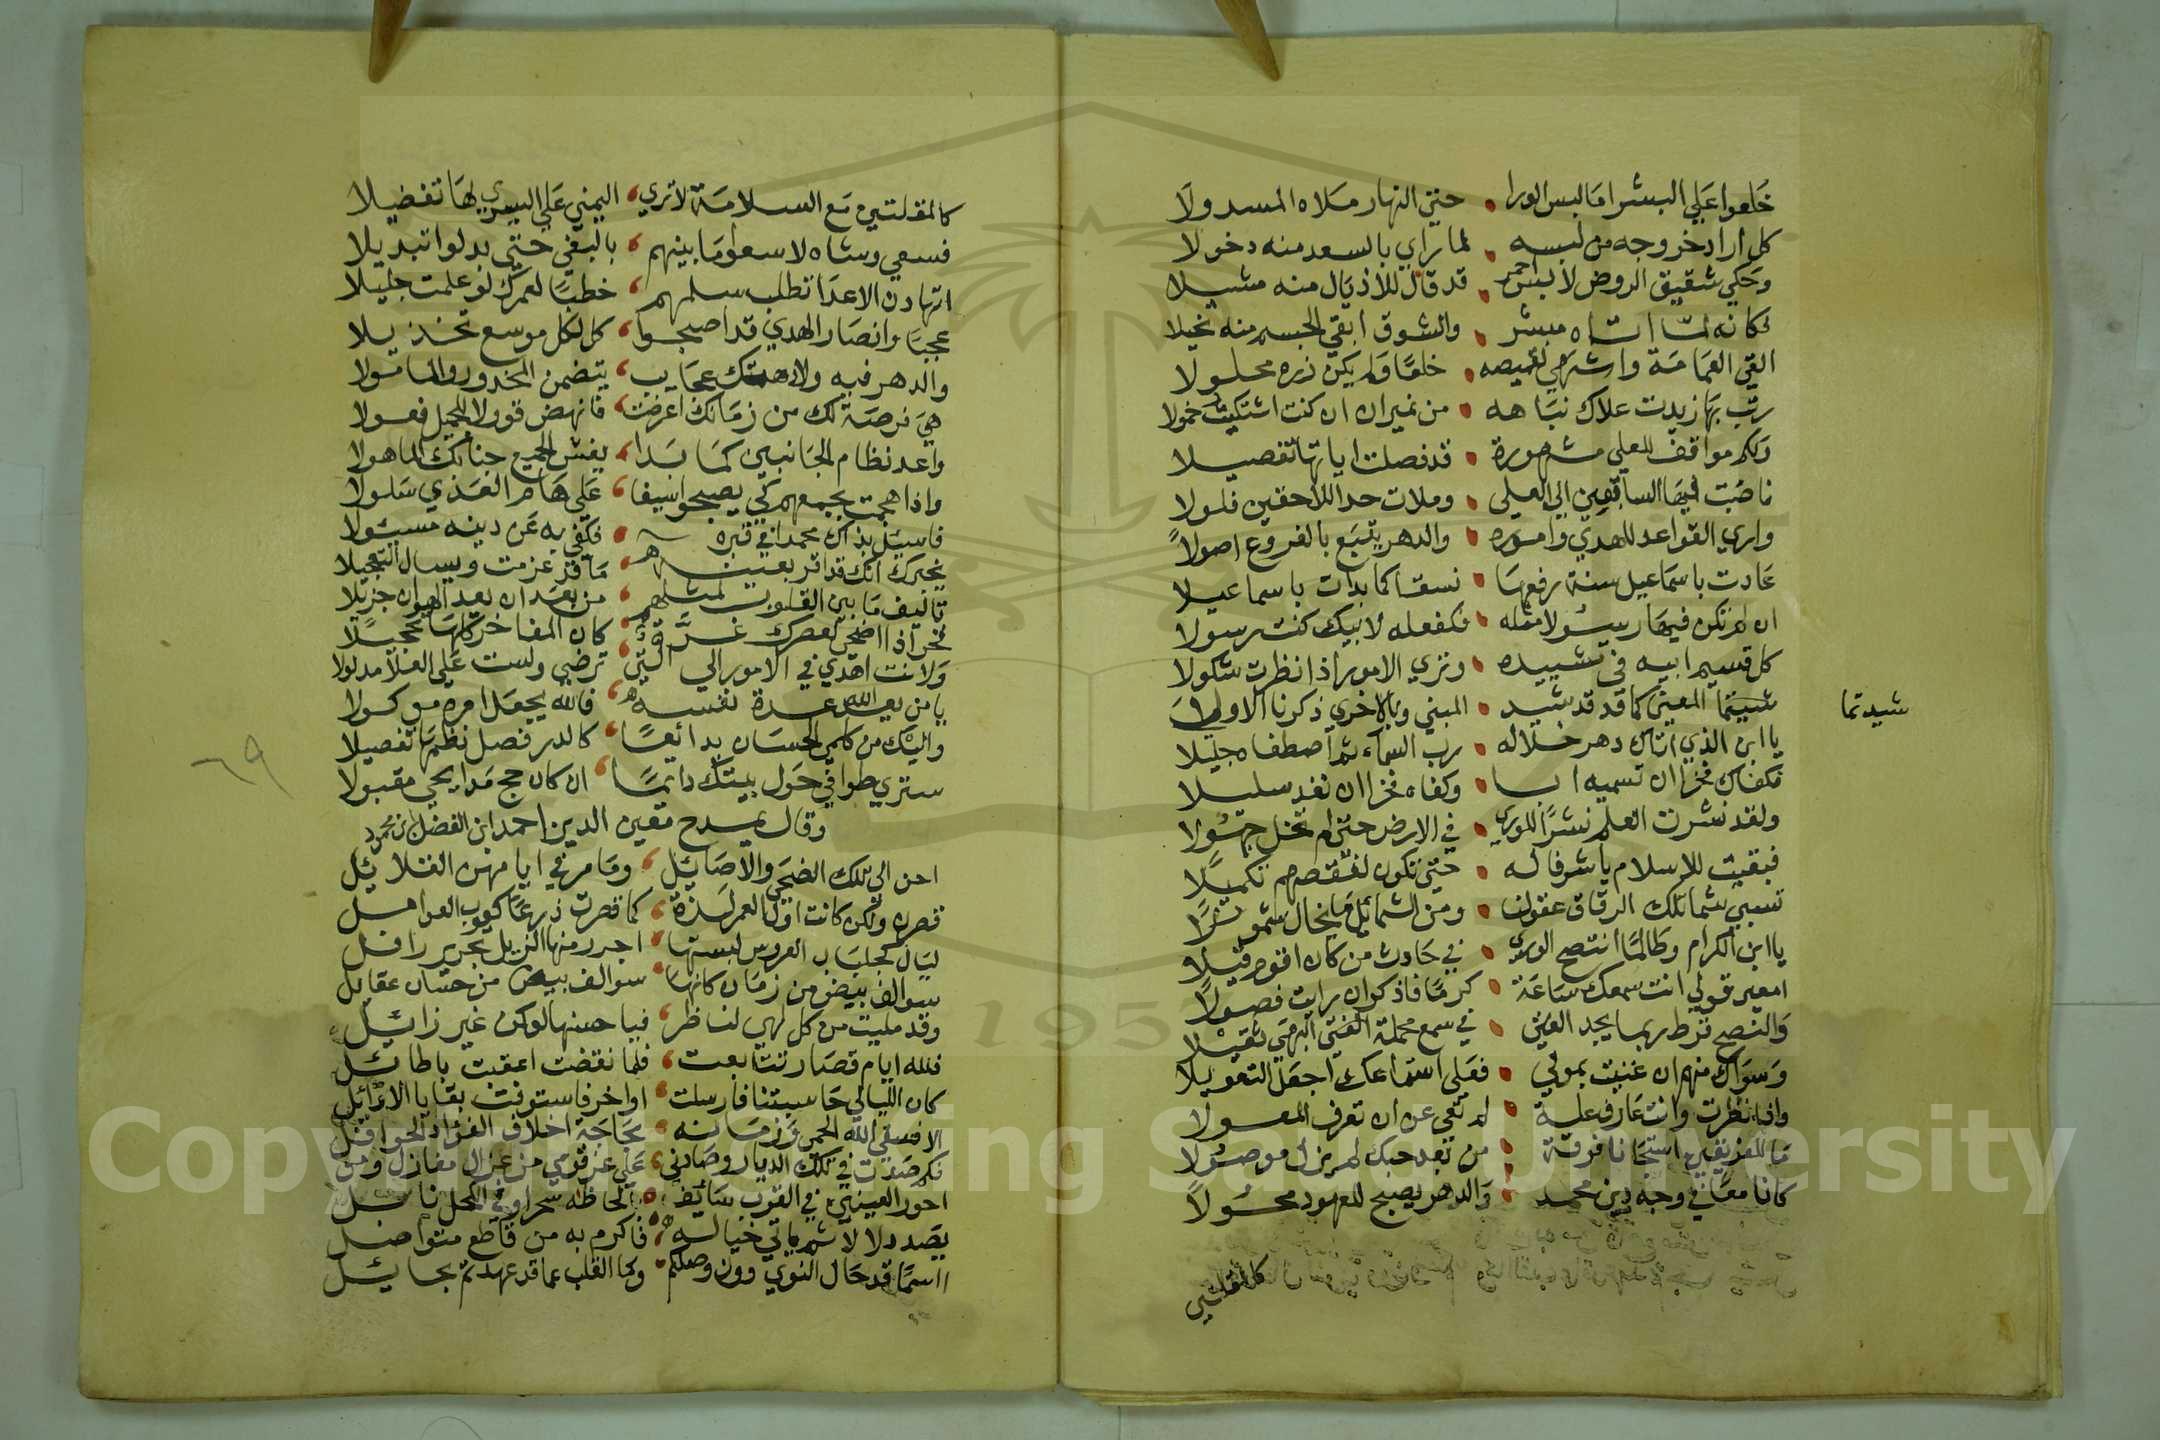 خلعوا علي البشرا ما لبس الورا • حتى النهار ملاه المسدولا
كل اراد خروجه من لبسه • لما تراي بالسعد منه دخولا
وحكي شقيق الروض لابس احمر • قد قال للاذيال منه مشيلا
فكانه لما اتاه مبشر • والشوق ابقي الجسم منه نحيلا
القي العمامة واشتهي لقميصه • خلعا ولم يكن زره محلولا
رتب بها زيدت علاك نباهه • من غير ان ان كنت اشتكيت خمولا
ولكم مواقف للعلي مشهورة • قد فصلت اياتها تفصيلا
ناصبت فيها السابقين الي العلي • وملات حد اللاحقين فلولا
واري القواعد للهدي واموره • والدهر يتبع بالفروع اصولا
عادت باسماعيل سنة رفعها • نسقا كما بدات باسماعيلا
ان لم تكن فيها رسولا مثله • فكفعله لابيك كنت رسولا
كل قسيم ابيه في تشييده • وتري الامور اذا نظرت شكولا
شيبتما المعين كما قد قد شيد • المبني وبالاخري ذكرنا الاولي
شيدتما
يا ابن الذي اتاك دهر خلاله • رب السماء ثم اصطفاه جليلا
فكفاك فخرا ان تسميه ابا • وكفاه فخرا ان تغد سليلا
ولقد نشرت العلم نشرا للوري • في الارض حتى لم تخل جهولا
فبقيت للاسلام يا شرفا له • حتى تكون لنقصهم تكميلا
تسبي شمائلك الرقاق عقولنا • ومن الشمائل ما يخال شمولا
يا ابن الكرام وطالما انتصح الوري • في حادث من كان اقوم قيلا
امعير قولي انت سمعك ساعة • كرما فاذكر ان رايت فصولا
والنصح قرط ربما يجد الفتي • في سمع محملة الفتي البرمي ثقيلا
وسواك منهم ان عنيت بمولي • فعلي استماعك اجعل التعويلا
واذا نظرت وانت عارف علة • لم تعي عن ان تعرف المعلولا
ما للفريقين استجانا فرقة • من بعد حبك لم يزل موصولا
كانا معا في وجه دين محمد • والدهر يصبح للعهود محولا
كالمقلتين
كالمقلتين مع السلامة لا تري • اليمني علي اليسري لها تفضيلا
فسعي وشاه لا سعوا ما بينهم • بالبغي حتى بدلوا تبديلا
اتهادن الاعدا تطلب سلمهم • خطبا لعمرك لو علمت جليلا
عجبا وانصار الهدي قد اصبحوا • كل لكل موسع تخذيلا
والدهر فيه ولادهتك عجايب • يتضمن المحذور والمامولا
هي فرصة لك من زمانك اعرضت • فانهض قوولا للجميل فعولا
واعد نظام الجانبين كما بدا • يغش الجميع جنابك الماهولا
واذا هجمت بجمعهم كي يصبحوا سيفا • علي هام العدي مسلولا
فاسيل بذاك محمدا في قبره • فكفي به عن دينه مسيولا
يخبرك انك قد اقر بعينه • ما قد عزمت ويسال التعجيلا
تاليف ما بين القلوب لمثلهم • من بعد ان بعد الهوان جزيلا
نحر اذا اضحي لعصرك غرة • كان المفاخر كلها تحجيلا
ولانت اهدي في الامور الي التي • ترضي ولست علي العلا مدلولا
يا من يعد الله عدة نفسه • فالله يجعل امره موكولا
واليك من كلمي الحسان بدائعا • كالدر فصل نظمها تفصيلا
ستري طوافي حول بيتك دايما • ان كان حج مدايحي مقبولا
وقال يمدح معين الدين احمد ابن الفضل بن محمود
احن الي تلك الضحي والاصايل • وما مر في ايامهن القلايل
قصرن ولكن كانت اول العمر لذة • كما قصرت ذرعا كعوب العوامل
ليال كجلباب العروس لبستها • اجرر منها الذيل تجرير رافل
سوالف بيض من زمان كانها • سوالف بيض من حسان عقايل
وقد مليت من كل لهي لناظر • فيا حسنها لو كن غير زايل
فلله ايام قصار تتابعت • فلما نقضت اعقبت باطائل
كان الليالي حاسبتنا فارسلت • اواخر فاستوفت بقايا الاوائل
الا فسقي الله الحمي وزمانه • بحاجة اخلاف الفؤاد الحوافل
فكم صدت في تلك الديار وصادني • علي عز قومي من غزال مغازل ومن
احور العينين في القوب سائف • الحاظه سحرا وفي المحل نابل
يصد دلالا ثم ياتي خياله • فاكرم به من قاطع متواصل
ااسما قد حال النوي دون وصلكم • وكا القلب عما قد عهدتم بحايل
٦٩